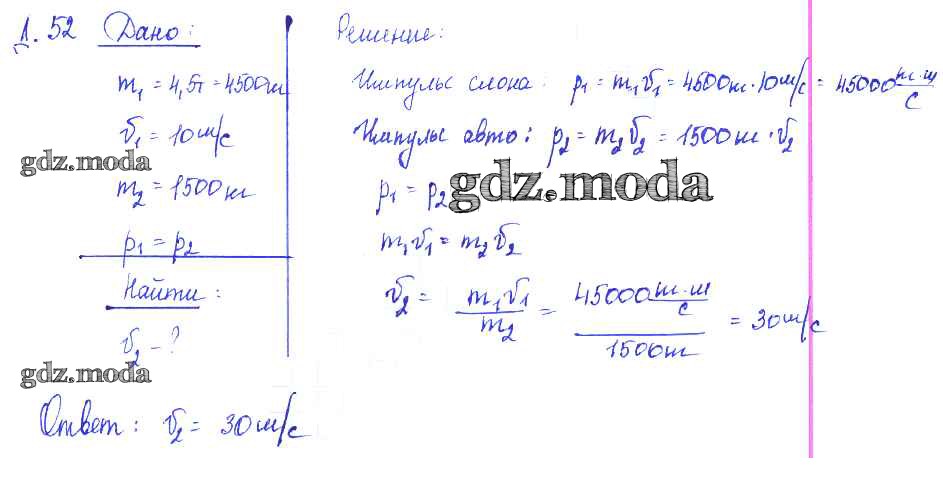 Д. 52 Дано:
m₁ = 4,5т = 4500кг
v₁ = 10м/с
gdz.moda
m₂ = 1500кг
p₁ = p₂
Найти:
v₂ - ?
gdz.moda
Решение:
Импульс слона: p₁ = m₁v₁ = 4500кг · 10м/с = 45000 кг·м/с
Импульс авто: p₂ = m₂v₂ = 1500кг · v₂
p₁ = p₂
gdz.moda
m₁v₁ = m₂v₂
v₂ = m₁v₁/m₂ = 45000 кг·м/с / 1500кг = 30м/с
Ответ: v₂ = 30м/с